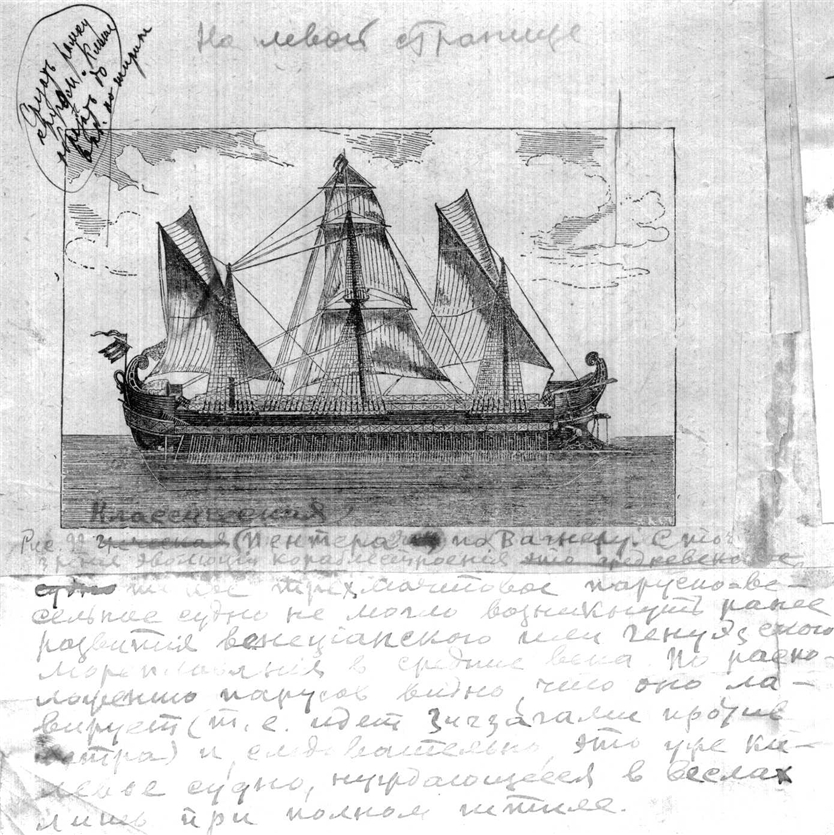 На левой странице
Классическая
Рис. 92 Греческая (Пентера) по Вагнеру. С точ-
ки зрения эволюции кораблестроения это древнее
судно такое трехмачтовое парусно-ве-
сельное судно не могло возникнуть ранее
развития венецианского или генуэзского
мореплавания в средние века. По распо-
ложению парусов видно, что оно ла-
вирует (т.е. идет зигзагами против
ветра) и, следовательно, это уже ки-
левое судно, нуждающееся в веслах
лишь при полном штиле.